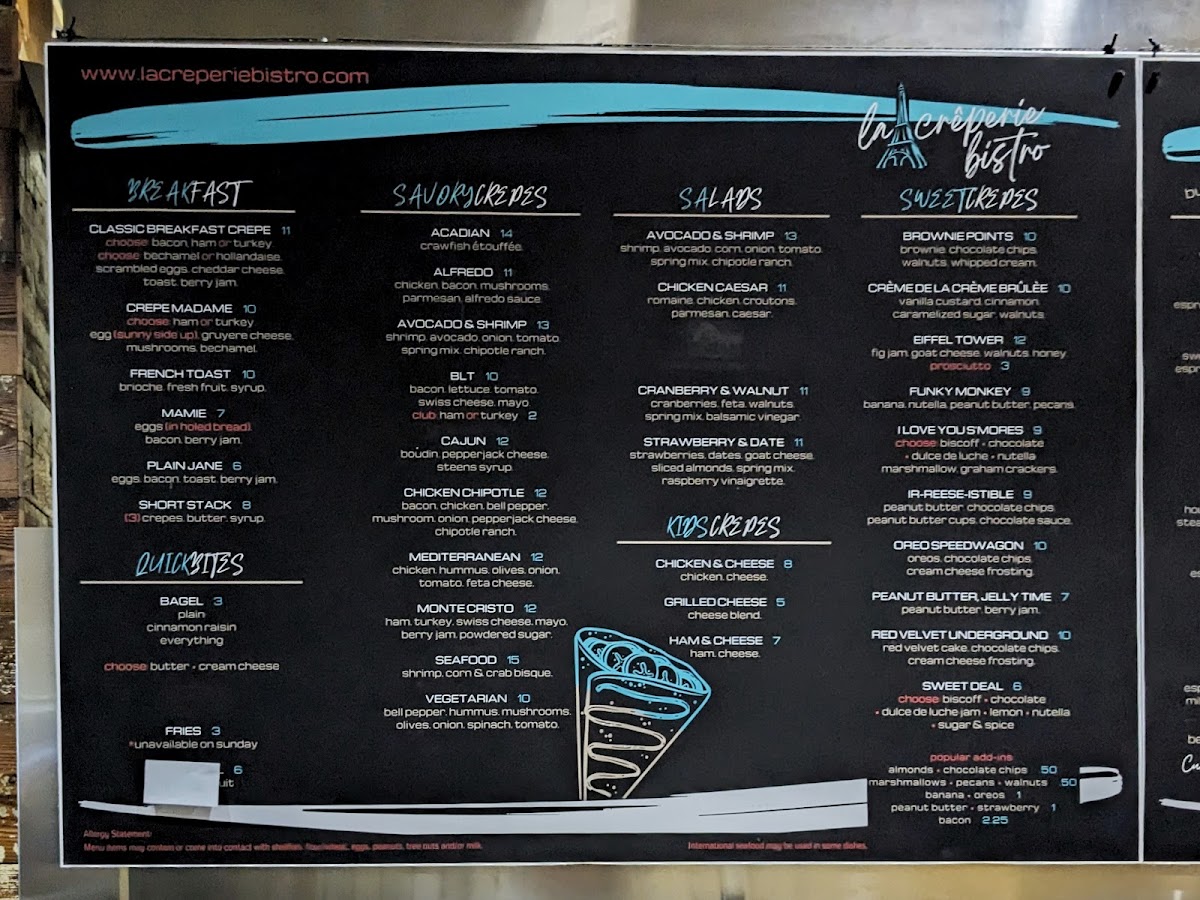 www.lacreperiebistro.com
la crêperie
bistro
BREAKFAST
CLASSIC BREAKFAST CREPE 11
choose: bacon, ham or turkey.
choose: bechamel or hollandaise.
scrambled eggs, cheddar cheese,
toast, berry jam.
CREPE MADAME 10
choose: ham or turkey
egg (sunny side up), gruyere cheese,
mushrooms, bechamel.
FRENCH TOAST 10
brioche, fresh fruit, syrup.
MAMIE 7
eggs (in holed bread),
bacon, berry jam.
PLAIN JANE 6
eggs, bacon, toast, berry jam.
SHORT STACK 8
(3) crepes, butter, syrup.
QUICKBITES
BAGEL 3
plain
cinnamon raisin
everything
choose: butter • cream cheese
FRIES 3
*unavailable on sunday
6
SAVORYCREPES
ACADIAN 14
crawfish étouffée.
ALFREDO 11
chicken, bacon, mushrooms,
parmesan, alfredo sauce.
AVOCADO & SHRIMP 13
shrimp, avocado, onion, tomato,
spring mix, chipotle ranch.
BLT 10
bacon, lettuce, tomato,
swiss cheese, mayo.
club: ham or turkey 2
CAJUN 12
boudin, pepperjack cheese,
steens syrup.
CHICKEN CHIPOTLE 12
bacon, chicken, bell pepper,
mushroom, onion, pepperjack cheese,
chipotle ranch.
MEDITERRANEAN 12
chicken, hummus, olives, onion,
tomato, feta cheese.
MONTE CRISTO 12
ham, turkey, swiss cheese, mayo,
berry jam, powdered sugar.
SEAFOOD 15
shrimp, corn & crab bisque.
VEGETARIAN 10
bell pepper, hummus, mushrooms,
olives, onion, spinach, tomato.
SALADS
AVOCADO & SHRIMP 13
shrimp, avocado, corn, onion, tomato,
spring mix, chipotle ranch.
CHICKEN CAESAR 11
romaine, chicken, croutons,
parmesan, caesar.
CRANBERRY & WALNUT 11
cranberries, feta, walnuts,
spring mix, balsamic vinegar.
STRAWBERRY & DATE 11
strawberries, dates, goat cheese,
sliced almonds, spring mix,
raspberry vinaigrette.
KIDSCREPES
CHICKEN & CHEESE 8
chicken, cheese.
GRILLED CHEESE 5
cheese blend.
HAM & CHEESE 7
ham, cheese.
SWEETCREPES
BROWNIE POINTS 10
brownie, chocolate chips,
walnuts, whipped cream.
CRÈME DE LA CRÈME BRÛLÈE 10
vanilla custard, cinnamon,
caramelized sugar, walnuts.
EIFFEL TOWER 12
fig jam, goat cheese, walnuts, honey.
prosciutto 3
FUNKY MONKEY 9
banana, nutella, peanut butter, pecans.
I LOVE YOU S'MORES 9
choose: biscoff • chocolate
• dulce de luche • nutella
marshmallow, graham crackers.
IR-REESE-ISTIBLE 9
peanut butter, chocolate chips,
peanut butter cups, chocolate sauce.
OREO SPEEDWAGON 10
oreos, chocolate chips,
cream cheese frosting.
PEANUT BUTTER, JELLY TIME 7
peanut butter, berry jam.
RED VELVET UNDERGROUND 10
red velvet cake, chocolate chips,
cream cheese frosting.
SWEET DEAL 6
choose: biscoff • chocolate
• dulce de luche jam • lemon • nutella
• sugar & spice
popular add-ins:
almonds • chocolate chips .50
marshmallows • pecans • walnuts .50
banana • oreos 1
peanut butter • strawberry 1
bacon 2.25
Allergy Statement:
Menu items may contain or come into contact with shellfish, flour/wheat, eggs, peanuts, tree nuts and/or milk.
International seafood may be used in some dishes.